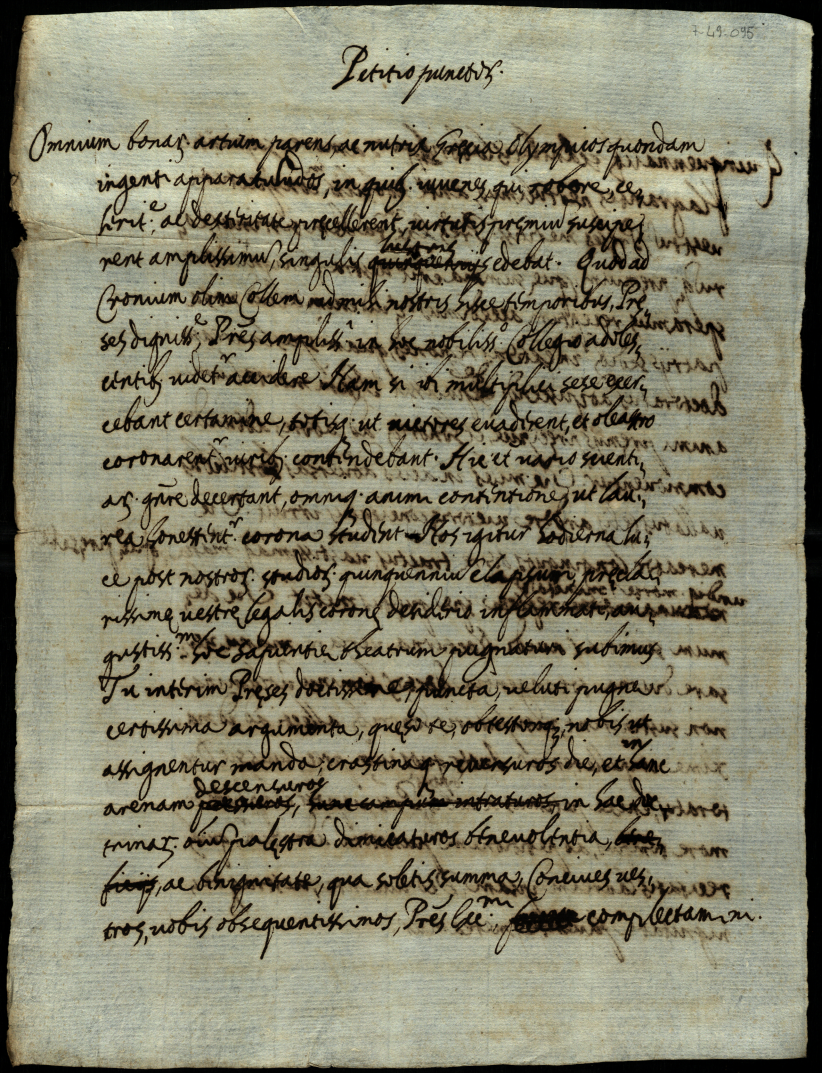 7-49-095
Petitio punctor.
Omnium bonar. artium parens, ac nutrix Grecia Olympicos quondam
ingenti apparatu ludos, in quib. iuvenes, qui robore, ce,
lerit.e ac dexteritate precellerent, virtutis premiu suscipe,
rent amplissimu, singulis lustris edebat. Quod ad
Cronium olim Collem id mihi nostris hisce temporibus, Pre,
ses digniss.e Pres ampliss.i in hoc nobiliss.o Collegio adoles,
centib. videt.r accidere. Nam si ibi multiplici sese exer,
cebant certamine, totisq. ut victores evaderent, et oleastro
coronarent.r virib. contendebant. Hic et vario scienti,
ar. gnre decertant, omniq. animi contentione, ut lau,
rea honestent.r corona student. Nos igitur hodierna lu,
ce post nostror. studior. quinquenniu elapsum, precla,
rissime vestre legalis corone desiderio inflammati, au,
gustiss.mu hoc sapientie theatrum pugnaturi subimus
Tu interim Preses doctissime, puncta, veluti pugne
certissima argumenta, queso te, obtestorq., nobis ut
assignentur manda; crastina reversuros die, et in hanc
arenam descensuros in hac doc
trinar. oium palestra dimicaturos benevolentia,
ac benignitate, qua soletis summa, Concives ves,
tros, vobis obsequentissimos, Pres lec.mi complectamini.